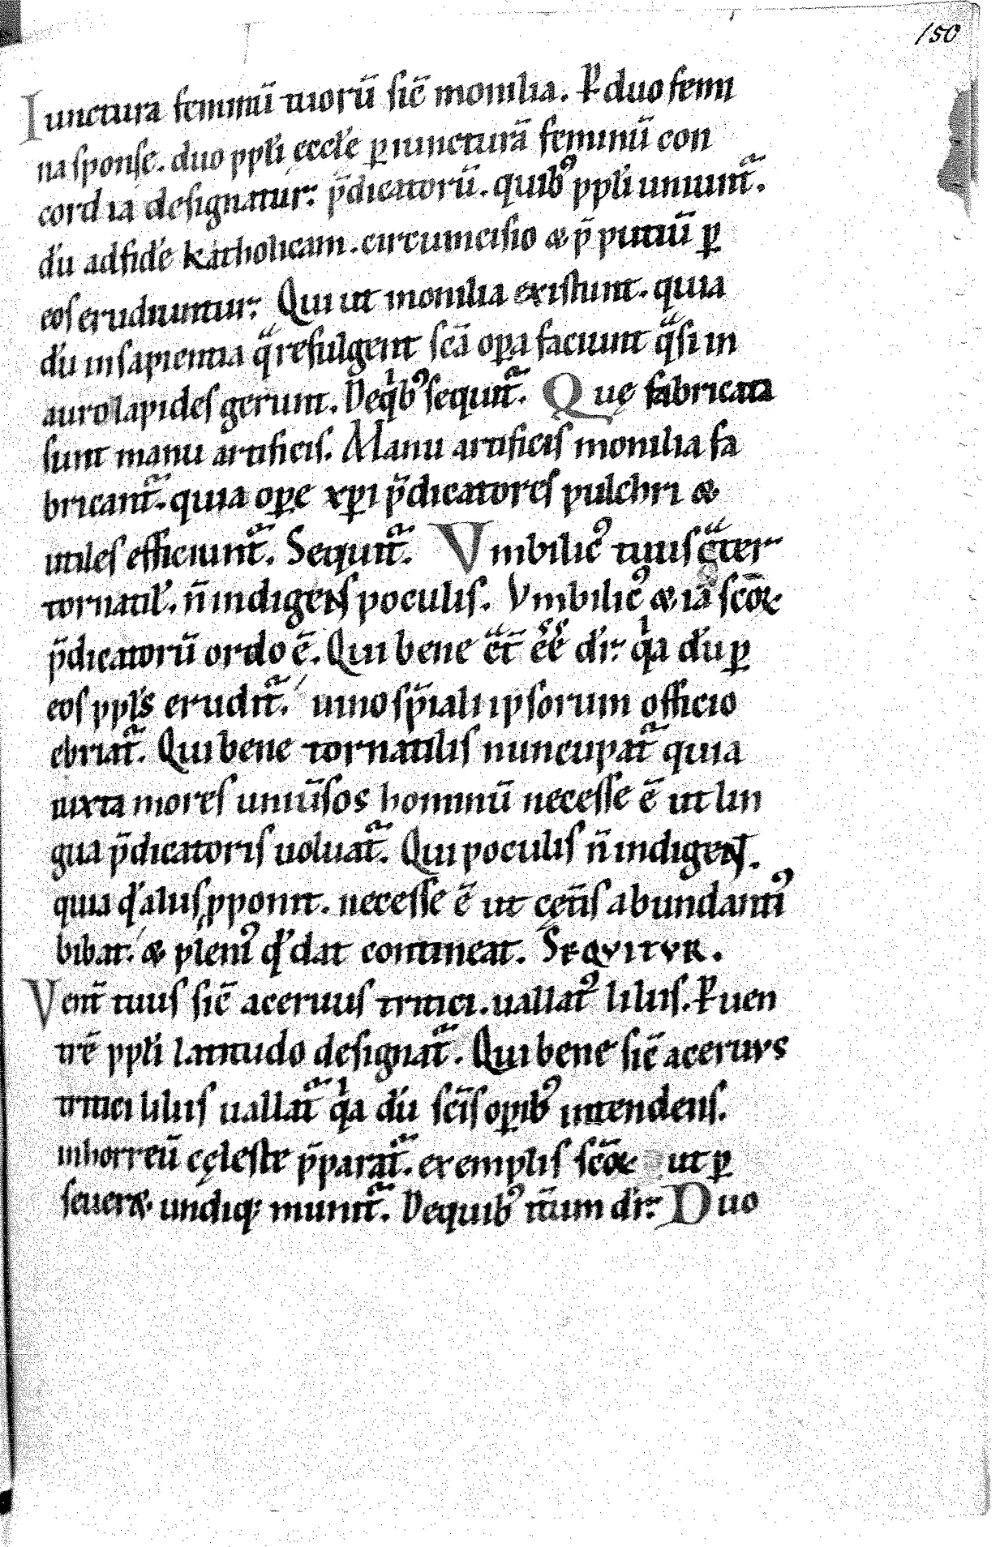 150
Iunctura feminū tuorū sic̄ monilia. P̲ duo femi
na sponse. duo ppli eccl̄e p̲ iuncturā feminū con
cordia designatur. p̄dicatorū. quib; ppli uniunt̃.
dū ad fidē katholicam. circumcisio & p̄putiū p̲
eos erudiuntur. Qui ut monilia existunt. quia
dū in sapientia qͣ refulgent sc̄a op̲a faciunt qͣsi in
auro lapides gerunt. De qⁱb; sequit̃. Quę fabricata
sunt manu artificis. Manu artificis monilia fa
bricant̃. quia op̲e xp̲i p̄dicatores pulchri &
utiles efficiunt̃. Sequit̃. Vmbilic᾽ tuus cͣter
tornatil᾽. n̄ indigens poculis. Vmbilic᾽ & iā sc̄oꝝ
p̄dicatorū ordo ē. Qui bene cͣt̄ eē᾽ dr̄. qⁱa dū p̲
eos ppls̄ erudit̃. uino sp̄iali ipsorum officio
ebriat̃. Qui bene tornatilis nuncupat̃ quia
iuxta mores uniūsos hominū necesse ē ut lin
gua p̄dicatoris uoluat̃. Qui poculis n̄ indigens.
quia qd̄ aliis pponit. necesse ē ut cęt̄is abundanti᾽
bibat. & pleni᾽ qd̄ dat contineat. SEQVITVR.
Vent̄ tuus sic̄ aceruus tritici. uallat᾽ liliis. P̲ uen
trē ppli latitudo designat̃. Qui bene sic̄ aceruus
tritici liliis uallat̃ qⁱa dū sc̄is op̲ib; intendens.
in horreū cęleste p̄parat̃. exemplis sc̄oꝝ ut p̲
seueret. undiq; munit̃. De quib; it̄um dr̄. Duo